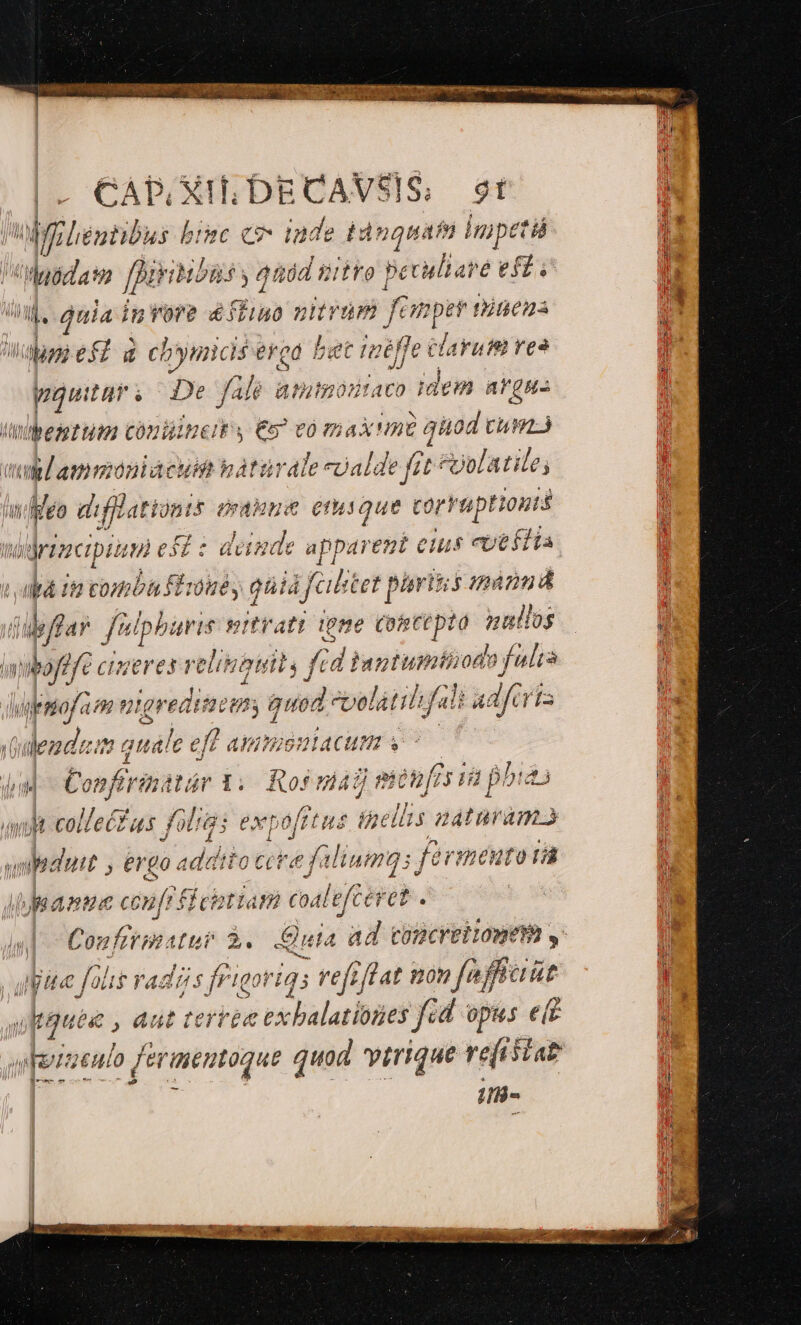 CAP. XII. DE CAVSIS. 91
silientibus hinc & inde tanquam impetu
quodam spiritibus, quod nitro peculiare est;
quia in rore æstiuo nitrum semper
est à chymicis ergo hæc inesse clarum res
De sale ammoniaco idem argu-
mentum conuincit, & eò maximè quod cum
ammoniacum naturale valde sit volatile,
difflationis mannæ eiusque corruptionis
principium est: deinde apparent eius vestigia
in combustione, quia scilicet purius manna
sulphuris nitrati igne concepto nullos
cineres relinquit, sed tantummodo fulig-
nigredinem, quod volatili sali adscri-
quale est ammoniacum.
Confirmatur 1. Ros maij mensis in phia-
collectus soliq; expositus mellis naturam
induit, ergo addito ceræ saliumq; fermento in
mannæ consistentiam coalesceret.
Confirmatur 2. Quia ad concretionem,
quæ solis radijs frigoriq; resistat non sufficiūt
aqueæ, aut terreæ exhalationes sed opus est
vinculo fermentoque quod vtrique resistat
im-